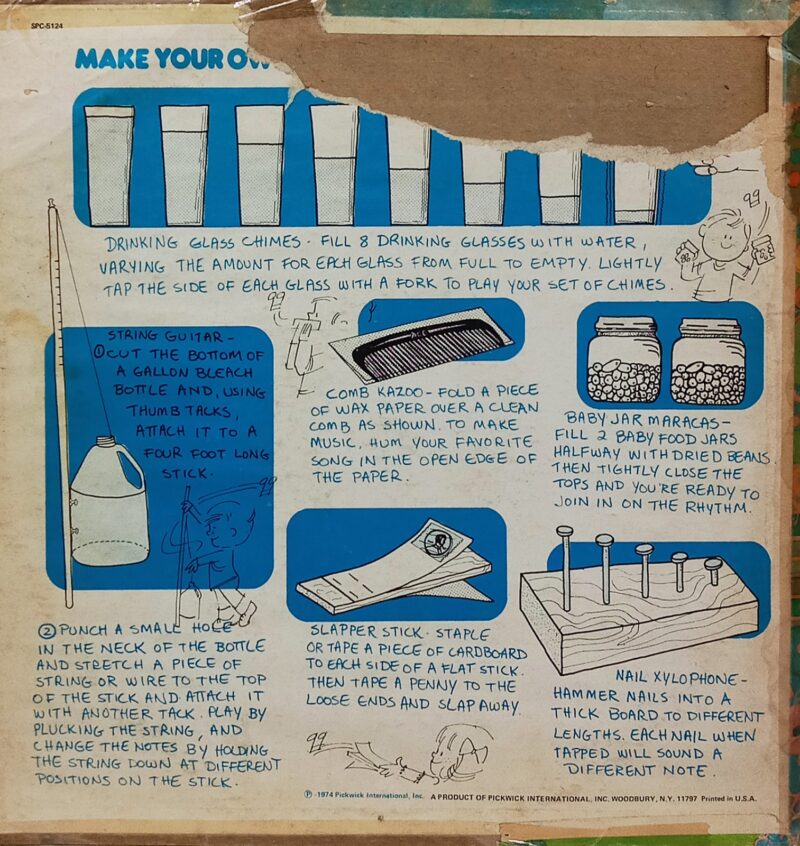 SPC-5124
MAKE YOUR OW
DRINKING GLASS CHIMES - FILL 8 DRINKING GLASSES WITH WATER,
VARYING THE AMOUNT FOR EACH GLASS FROM FULL TO EMPTY. LIGHTLY
TAP THE SIDE OF EACH GLASS WITH A FORK TO PLAY YOUR SET OF CHIMES.
STRING GUITAR -
① CUT THE BOTTOM OF
A GALLON BLEACH
BOTTLE AND, USING
THUMB TACKS,
ATTACH IT TO A
FOUR FOOT LONG
STICK.
② PUNCH A SMALL HOLE
IN THE NECK OF THE BOTTLE
AND STRETCH A PIECE OF
STRING OR WIRE TO THE TOP
OF THE STICK AND ATTACH IT
WITH ANOTHER TACK. PLAY BY
PLUCKING THE STRING, AND
CHANGE THE NOTES BY HOLDING
THE STRING DOWN AT DIFFERENT
POSITIONS ON THE STICK.
ACE
COMB KAZOO - FOLD A PIECE
OF WAX PAPER OVER A CLEAN
COMB AS SHOWN. TO MAKE
MUSIC, HUM YOUR FAVORITE
SONG IN THE OPEN EDGE OF
THE PAPER.
BABY JAR MARACAS -
FILL 2 BABY FOOD JARS
HALFWAY WITH DRIED BEANS.
THEN TIGHTLY CLOSE THE
TOPS AND YOU'RE READY TO
JOIN IN ON THE RHYTHM.
SLAPPER STICK - STAPLE
OR TAPE A PIECE OF CARDBOARD
TO EACH SIDE OF A FLAT STICK.
THEN TAPE A PENNY TO THE
LOOSE ENDS AND SLAP AWAY.
NAIL XYLOPHONE -
HAMMER NAILS INTO A
THICK BOARD TO DIFFERENT
LENGTHS. EACH NAIL WHEN
TAPPED WILL SOUND A
DIFFERENT NOTE.
Ⓟ - 1974 Pickwick International, Inc. A PRODUCT OF PICKWICK INTERNATIONAL, INC. WOODBURY, N.Y. 11797 Printed in U.S.A.